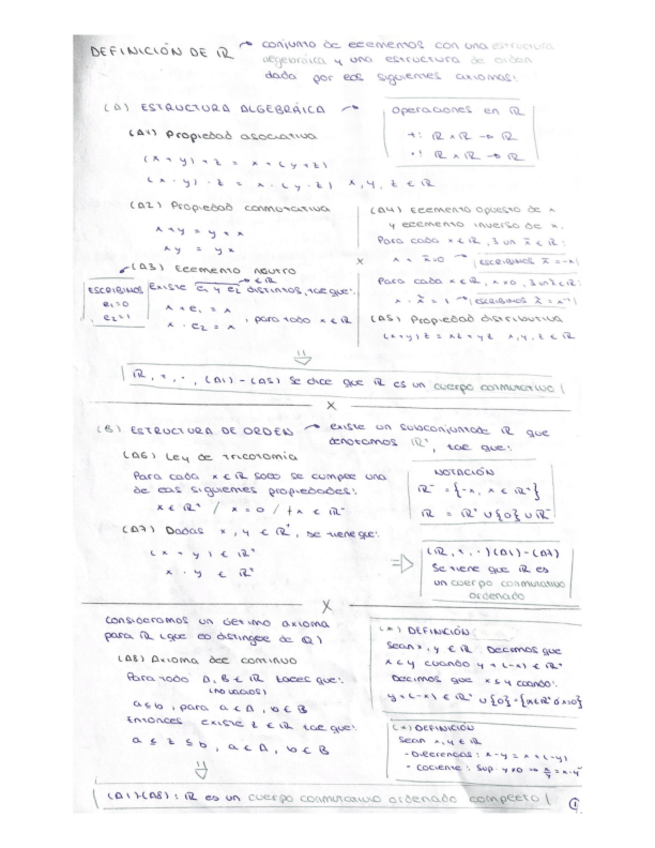 DEFINICIÓN DE ℝ → conjunto de elementos con una estructura
algebraica y una estructura de orden
dada por los siguientes axiomas:
(A) ESTRUCTURA ALGEBRÁICA →
Operaciones en ℝ
+: ℝ x ℝ → ℝ
·: ℝ x ℝ → ℝ
(A1) Propiedad asociativa
(x + y) + z = x + (y + z)
(x · y) · z = x · (y · z) x, y, z ∈ ℝ
(A2) Propiedad conmutativa
x + y = y + x
xy = yx
(A3) Elemento neutro
ESCRIBIMOS
e₁=0
e₂=1
Existe e₁ y e₂ distintos, tal que:
∈ ℝ
x + e₁ = x
x · e₂ = x , para todo x ∈ ℝ
(A4) Elemento opuesto de x
y elemento inverso de x.
Para cada x ∈ ℝ, ∃ un x̄ ∈ ℝ:
x + x̄=0 → ESCRIBIMOS x̄ = -x
Para cada x ∈ ℝ, x≠0, ∃ un x̃ ∈ ℝ:
x · x̃ = 1 → ESCRIBIMOS x̃ = x⁻¹
(A5) Propiedad distributiva
(x+y)z = xz + yz x, y, z ∈ ℝ
⇓
ℝ, +, ·, (A1) - (A5) Se dice que ℝ es un cuerpo conmutativo
x
(B) ESTRUCTURA DE ORDEN → existe un subconjunto de ℝ que
denotamos ℝ⁺, tal que:
(A6) Ley de tricotomía
Para cada x ∈ ℝ solo se cumple una
de las siguientes propiedades:
x ∈ ℝ⁺ / x = 0 / x ∈ ℝ⁻
NOTACIÓN
ℝ⁻ = {-x, x ∈ ℝ⁺}
ℝ = ℝ⁺ ∪ {0} ∪ ℝ⁻
(A7) Dadas x, y ∈ ℝ⁺, se tiene que:
(x + y) ∈ ℝ⁺
x · y ∈ ℝ⁺
⇒
(ℝ, +, ·) (A1) - (A7)
Se tiene que ℝ es
un cuerpo conmutativo
ordenado
x
Consideramos un último axioma
para ℝ (que lo distingue de ℚ)
(A8) Axioma del continuo
Para todo A, B ⊂ ℝ tales que:
(no vacíos)
a ≤ b, para a ∈ A, b ∈ B
Entonces existe z ∈ ℝ tal que:
a ≤ z ≤ b, a ∈ A, b ∈ B
(*) DEFINICIÓN
Sean x, y ∈ ℝ. Decimos que
x < y cuando y + (-x) ∈ ℝ⁺
Decimos que x ≤ y cuando:
y + (-x) ∈ ℝ⁺ ∪ {0} = {x ∈ ℝ⁺ ó x=0}
(*) DEFINICIÓN
Sean x, y ∈ ℝ
- Diferencias: x - y = x + (-y)
- Cociente: Sup. y≠0 ⇒ x/y = x · y⁻
⇓
(A1)-(A8): ℝ es un cuerpo conmutativo ordenado completo
1